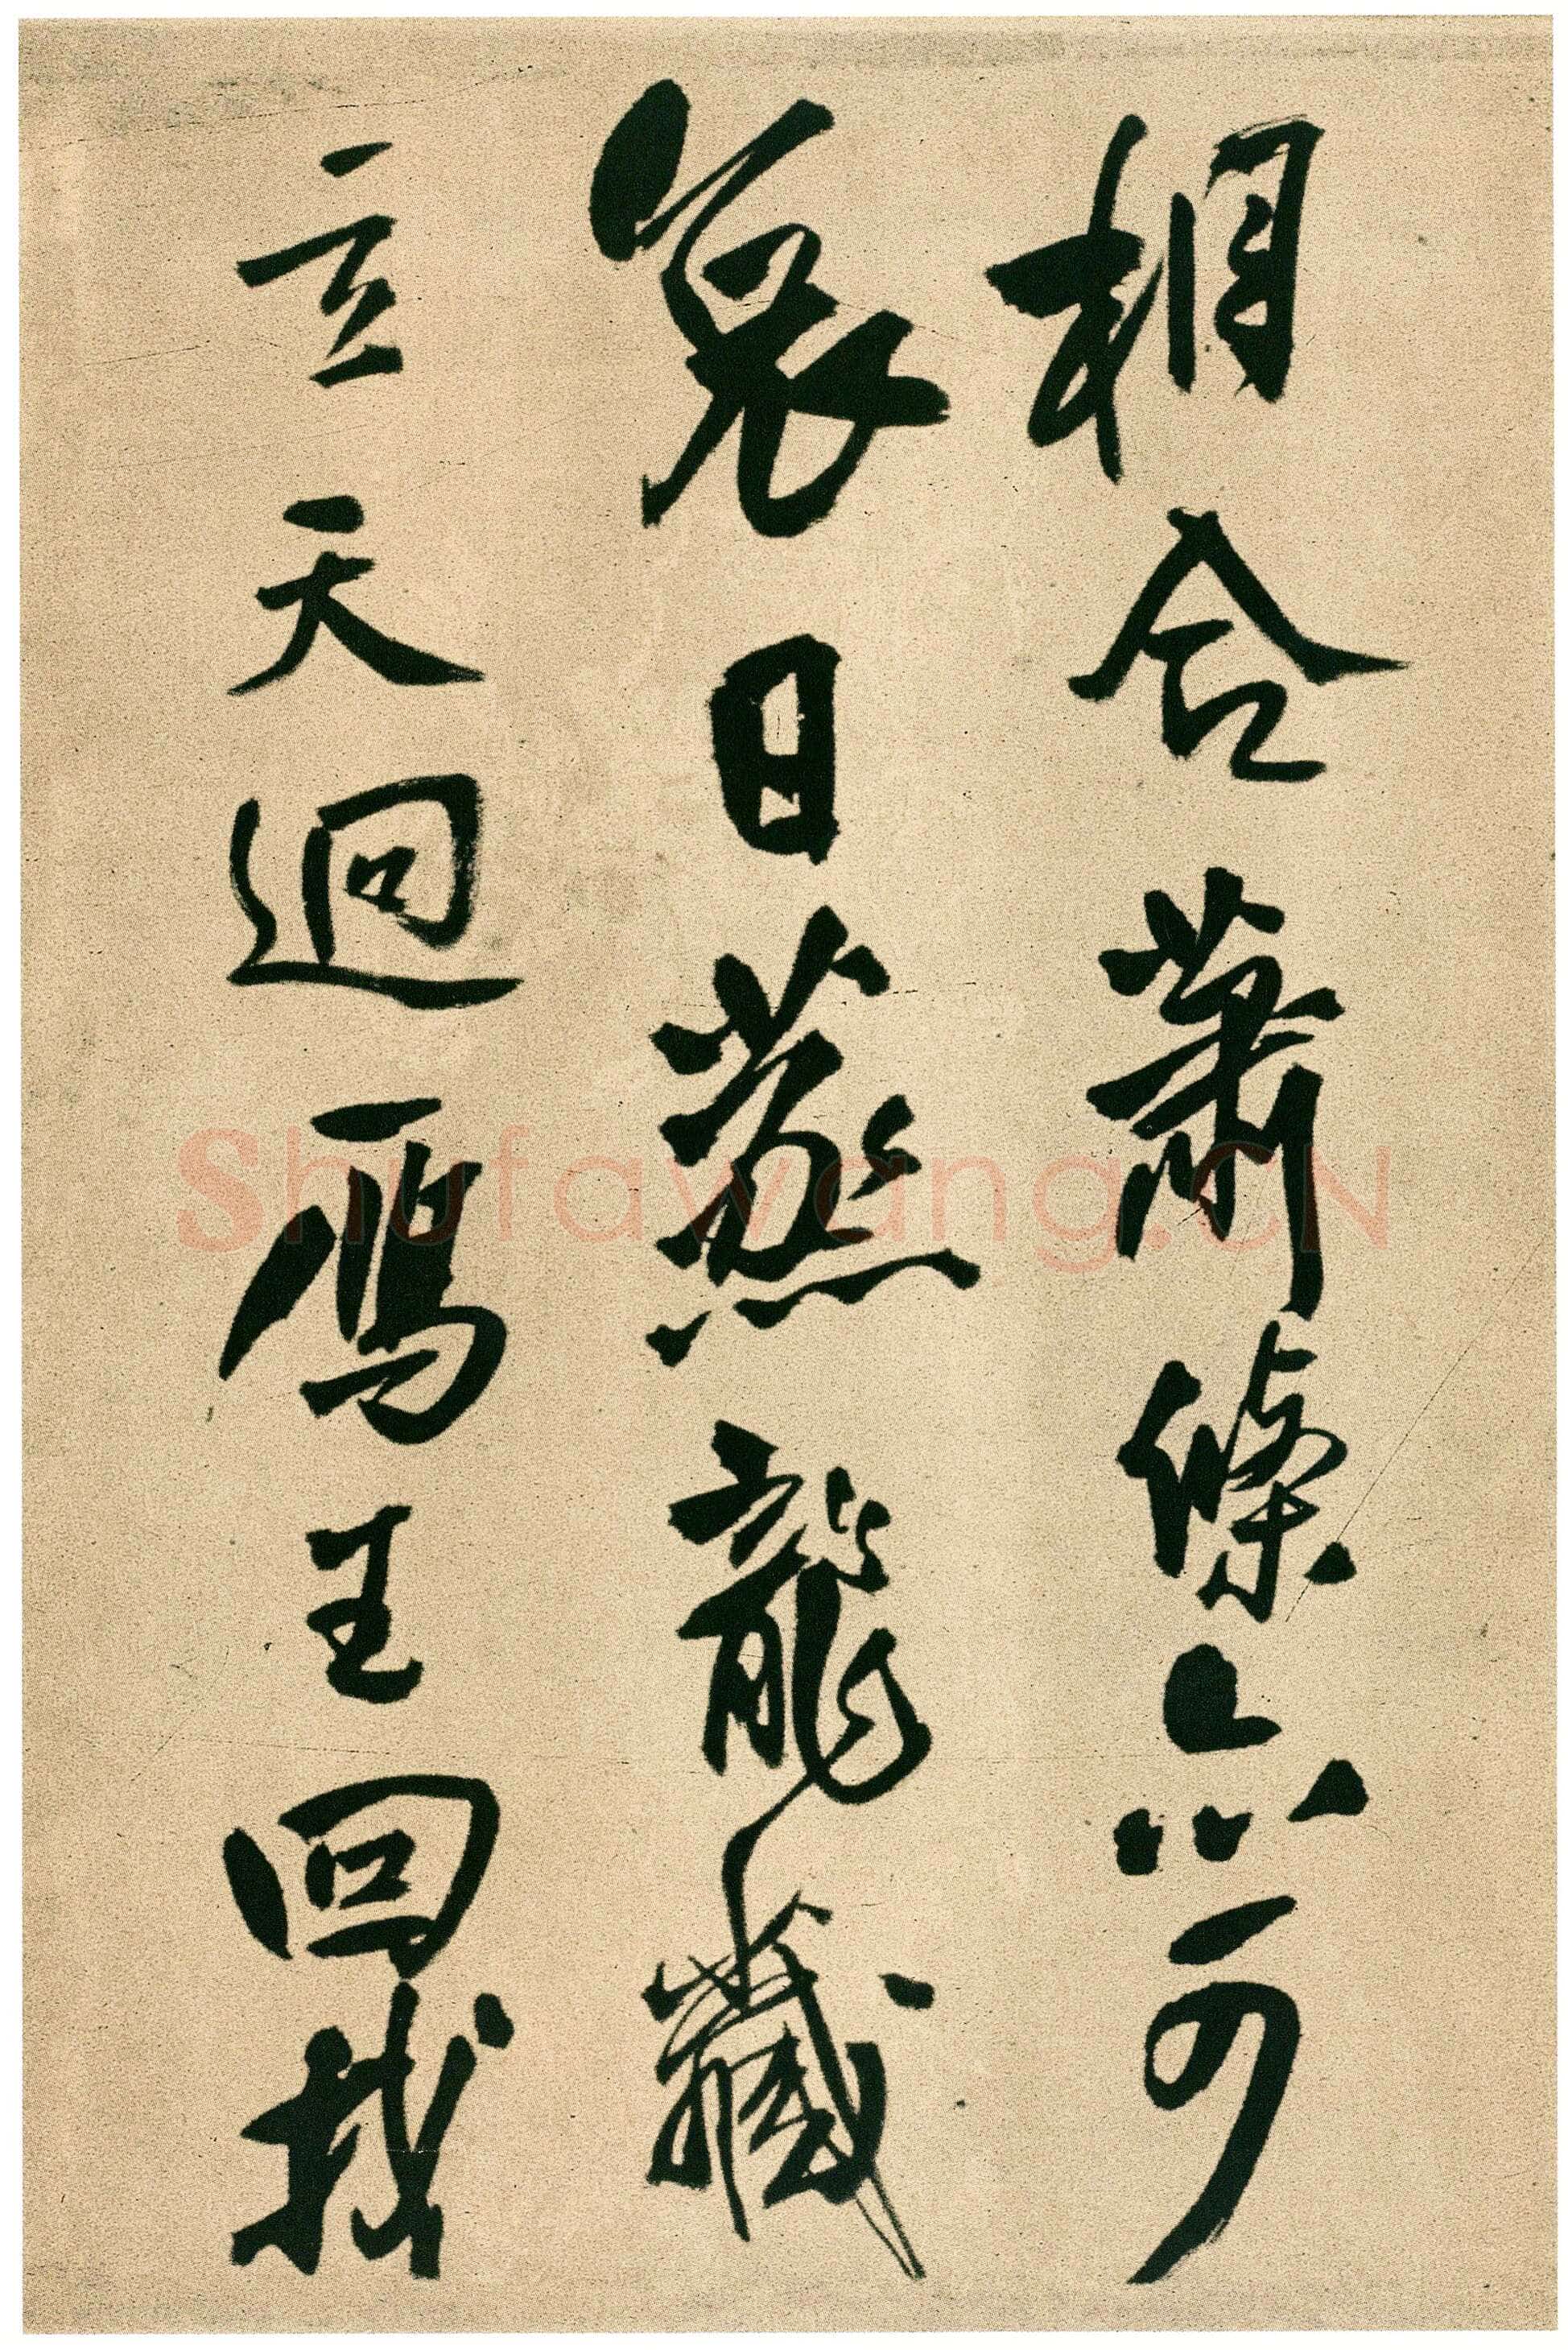 相合蕭條亦可
哀日蒸龍藏
立天迴雁王回
Shufawang.CN